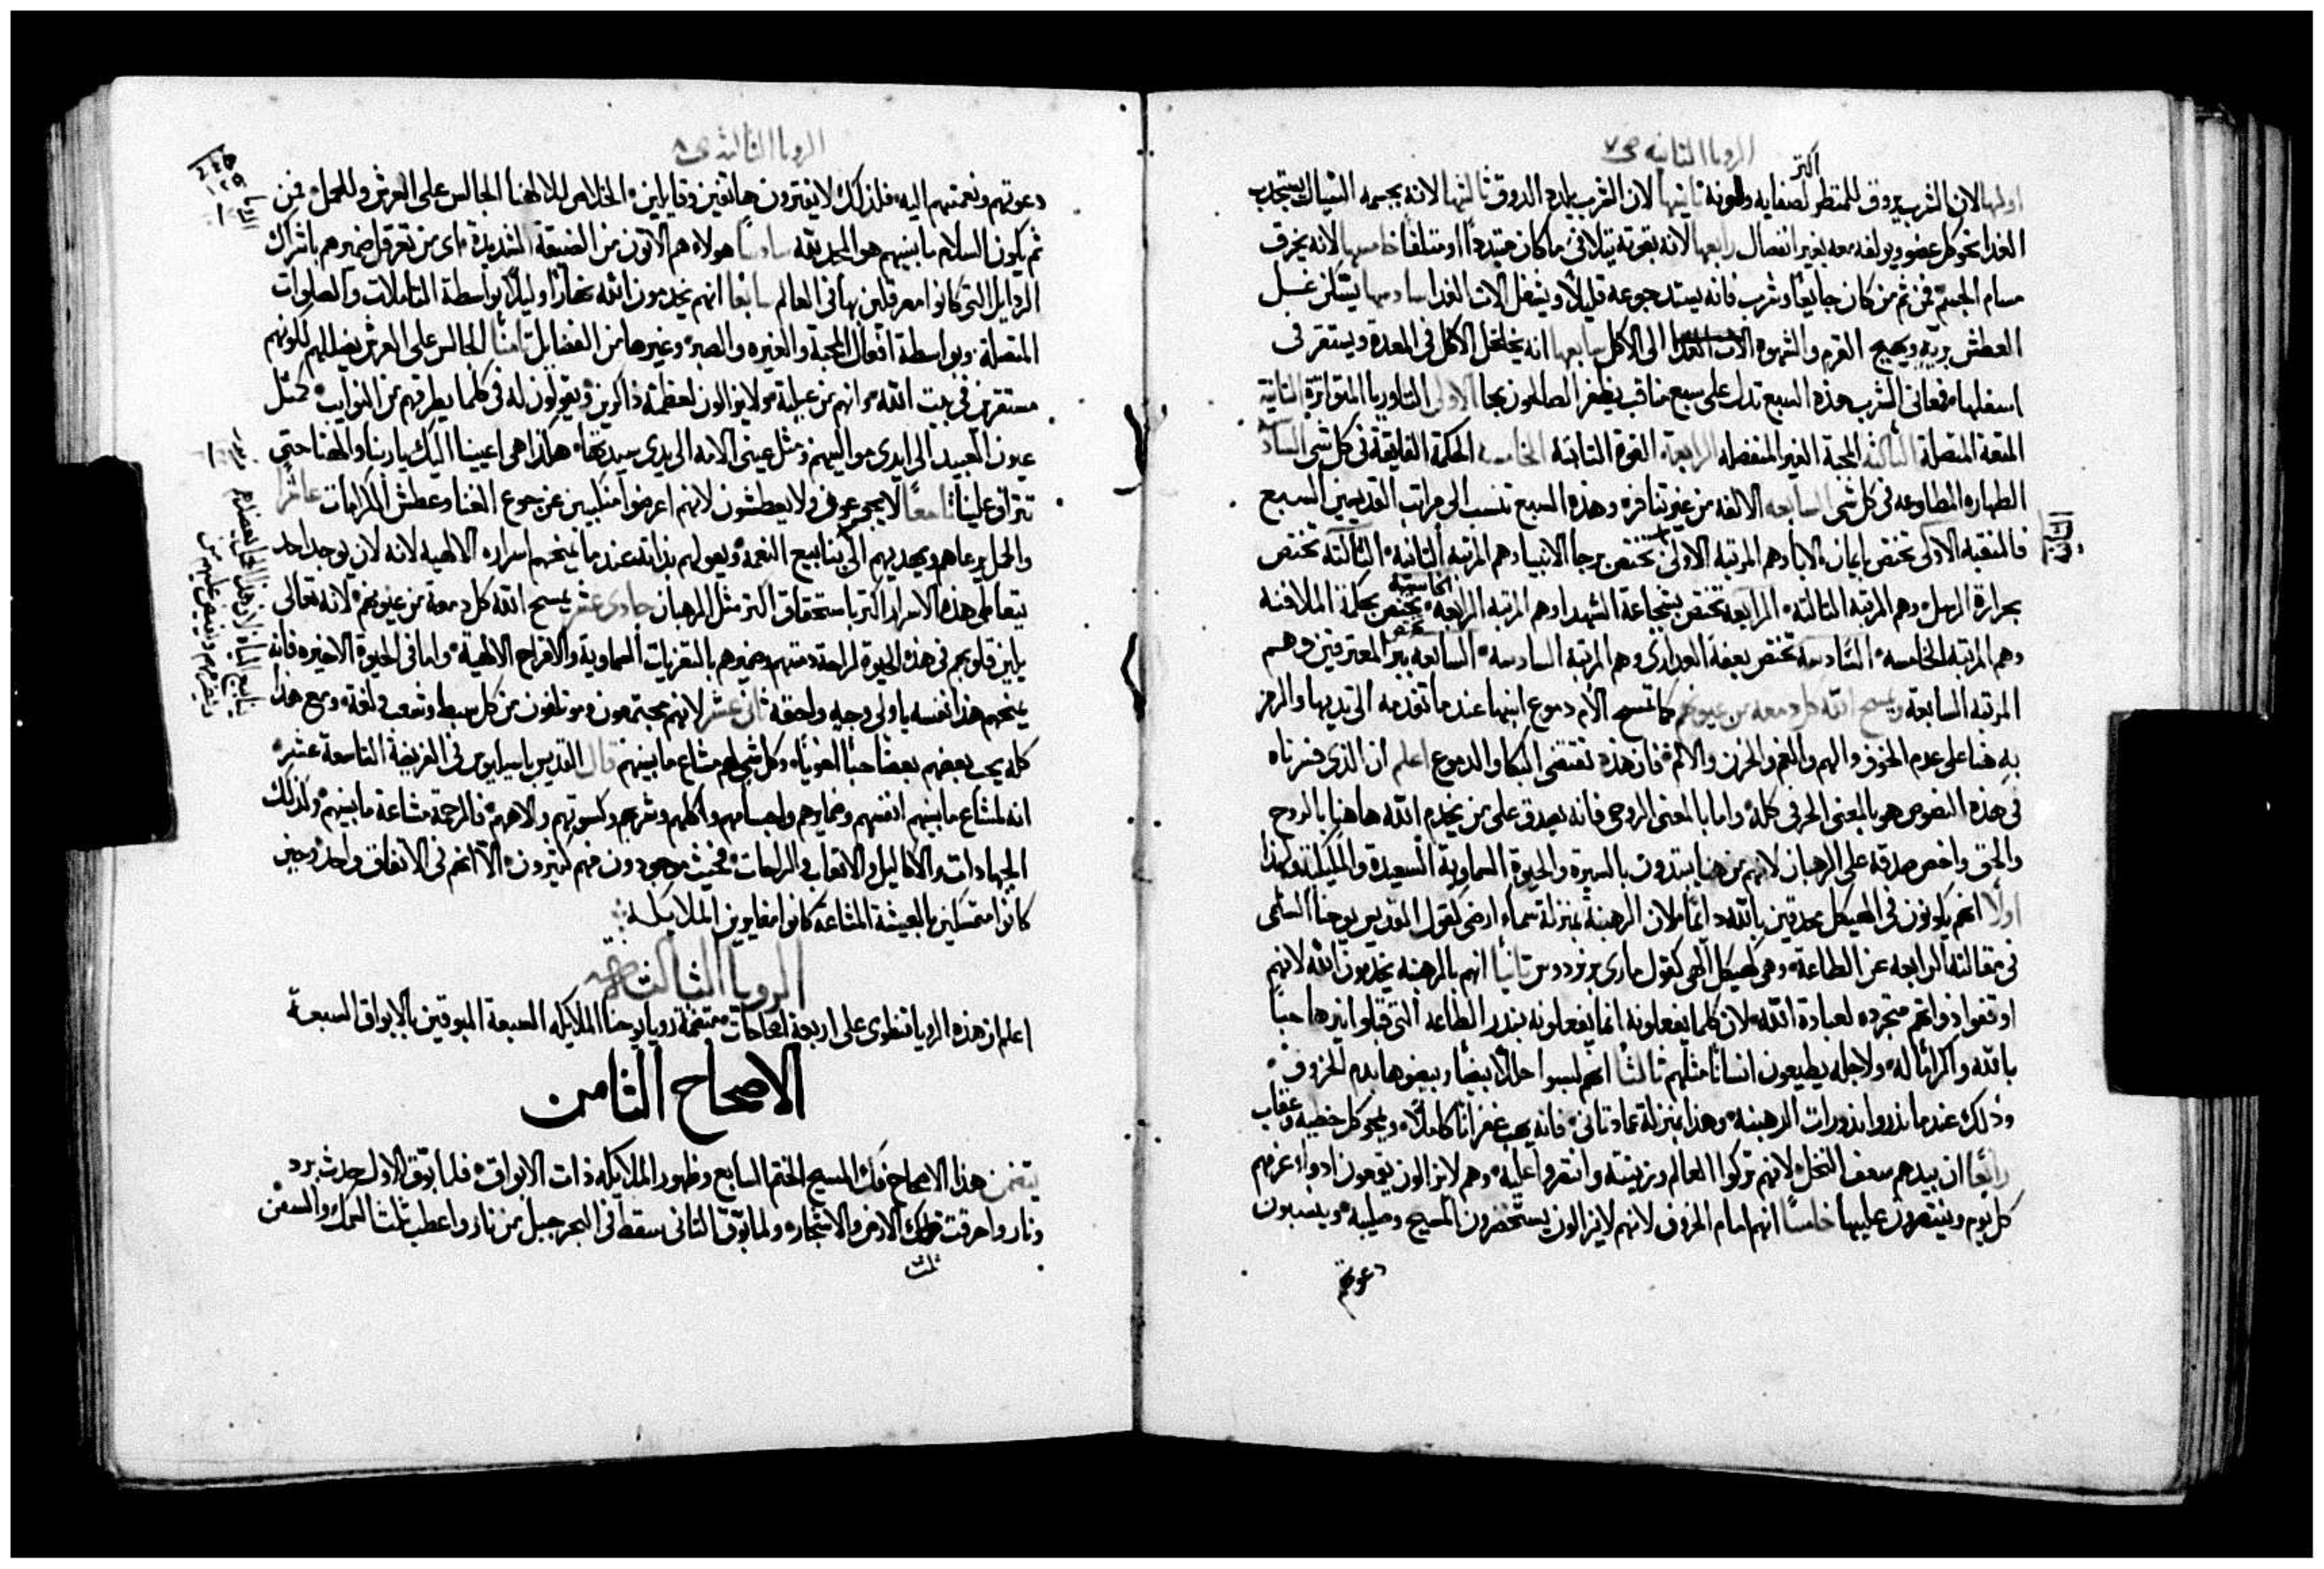 الرويا الثانيه ص٧
اكثر
اولها لان الشرب يروق للمنظر لصفايه ولمونه ثانيها لان الشرب يلذه الذوق ثالثها لانه بجسمه السيال يستجذب
الغدا نحو كل عضو ويولفه معه بغير انفصال رابعها لانه بقوته يتلافى ما كان مبتددا او متلفا خامسها لانه يخرق
مسام الجسم فمن ثم من كان جايعا وشرب فانه يستد جوعه قليلا ويشغل الات الغدا سادسها يسكن غسل
العطش بريه ويهيج القرم والشهوه الى الاكل سابعها انه يخلخل الاكل فى المعده ويستقر فى
اسفلها فمعانى الشرب هذه السبع تدل على سبع مناقب يظفر الصالحون بها الاولى التاوريا المتواترة الثانية
المتعة المتصلة الثالثه المحبة الغير المنفصله الرابعة القوة الثابتة الخامسه الحكمة الفايقة فى كل شى السادسه
الطهاره المطاوعه فى كل شى السابعه الالفه من غير تنافره وهذه السبع تنسب الى مراتب القديسين السبع
فالمنقبه الاولى تختص بايمان الابا وهم المرتبه الاولى تختص برجا الانبيا وهم المرتبه الثانية الثالثة تختص
بحرارة الرسل وهم المرتبه الثالثه الرابعه تختص بشجاعة الشهدا وهم المرتبه الرابعه الخامسة تختص بحكمة الملافنه
وهم المرتبة الخامسه السادسه تختص بعفة العدارى وهم المرتبة السادسه السابعه ببر المعترفين وهم
المرتبه السابعة ويمسح الله كل دمعه من عيونهم كما تمسح الام دموع ابنها عندما تقدمه الى ثدييها والرمز
به هنا على عدم الخوف والهم والغم والحزن والالم فان هذه تقتضى البكا والدموع اعلم ان الذى فسرناه
فى هذه النصوص هو بالمعنى الحرفى كله واما بالمعنى الروحى فانه يصدق على من يخدم الله هاهنا بالروح
والحق واخص صدقه على الرهبان لانهم من هنا يبتدون بالسيرة والحيوة السماوية السعيدة والملكية وهكذا
اولا انهم يكونون فى الهيكل محدقين بالله دايما لان الرهبنة بمنزلة سماء ارضى كقول القديس يوحنا السلمى
فى مقالته الرابعه عن الطاعة وهى كهيكل الهى كقول مارى برنردوس ثانيا انهم بالرهبنه يخدمون الله لانهم
اوقفوا ذواتهم متجرده لعبادة الله لان كلما يفعلونه انما يفعلونه بنذر الطاعه التى قبلوا نيرها حبا
بالله واكراما له ولاجله يطيعون انسانا مثلهم ثالثا انهم لبسوا حللا بيضا وبيضوها بدم الخروف
وذلك عندما نذروا نذورات الرهبنه وهذا بمنزلة عماد ثانى فانه يهب غفرانا كاملا ويمحو كل خطيه وعقاب
رابعا ان بيدهم سعف النخل لانهم تركوا العالم وزينته وانتصروا عليه وهم لايزالون يقمعون اهواء غرمهم
كل يوم وينتصرون عليها خامسا انهم امام الخروف لانهم لايزالون يستحضرون المسيح وصليبه وينسبون
دعوتهم
الرويا الثالثه ص٨
دعوتهم ونعمتهم اليه فلذلك لايفترون هاتفين وقايلين الخلاص لالهنا الجالس على العرش وللحمل فمن
ثم يكون السلام مابينهم هو المحد يقه سادسا هولاء هم الاتون من الضيقة الشديدة اى من تعرقل ضميرهم باشراك
الردايل التى كانوا معرقلين بها فى العالم سابعا انهم يخدمون الله نهارا وليلا بواسطة التاملات والصلوات
المتصلة وبواسطة افعال المحبة والغيره والصبر وغيرها من الفضايل ثامنا الجالس على العرش يضللهم لكونهم
مستقرين فى بيت الله وانهم من عيلته ولايزالون لعظمته ذاكرين ويقولون له فى كلما يطرقهم من النوايب كمثل
عيون العبيد الى ايدى مواليهم ومثل عينى الامه الى يدى سيدتها هكذا هى اعيننا اليك ياربنا والهنا حتى
تتراف علينا تاسعا لايجوعون ولا يعطشون لانهم اعرضوا متكبين عن جوع الغنا وعطش الكرامات عاشرا
والحمل يرعاهم ويهديهم الى ينابيع النعمه ويعولهم بذاته عندما يمنحهم اسراره الالهيه لانه لن يوجد احد
يتعاطى هذه الاسرار اكثر باستحقاق اكثر مثل الرهبان حادى عشر يمسح الله كل دمعة من عيونهم لانه تعالى
يلين قلوبهم فى هذه الحيوة لراحة ذمتهم وضميرهم بالتعزيات السماوية والافراح الالهية واما فى الحيوة الاخيره فانه
يمنحهم هذا نفسه باولى وجه واحقه ثانى عشر لانهم مجتمعون ومولفون من كل سبط وشعب ولغة ومع هذا
كله يحب بعضهم بعضا حبا اخويا وكل شى لهم مشاع مابينهم قال القديس باسيليوس فى الفريضة التاسعة عشر
انه لمشاع مابينهم انفسهم وضمايرهم واجسامهم واكلهم وشربهم وكسوتهم والاههم فالرحمة مشاعة مابينهم وكذلك
الجهادات والاكاليل والاتعاب والراحات فحيث موجودون منهم كثيرون الا انهم فى الاتفاق واحد وحين
كانوا متمسكين بالعيشة المشاعه كانوا مغايرين الملايكه
الرويا الثالثه
اعلم ان هذه الرويا تنطوى على اربعة اصحاحات متضمنة رويا يوحنا الملايكه السبعة المبوقين بالابواق السبعة
الاصحاح الثامن
يتضمن هذا الاصحاح فك المسيح الختم السابع وظهور الملايكه ذات الابواق فلما بوق الاول حدث برد
ونار واحرقت ثلث الارض والاشجار ولما بوق الثانى سقط فى البحر جبل من نار واعطب ثلث السمك والسفن
ثلث